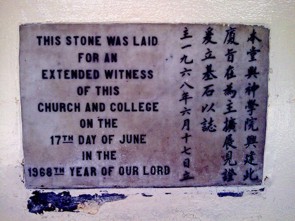 THIS STONE WAS LAID
FOR AN
EXTENDED WITNESS
OF THIS
CHURCH AND COLLEGE
ON THE
17TH DAY OF JUNE
IN THE
1968TH YEAR OF OUR LORD
本堂與神學院興建此
廈旨在為主擴展見證
爰立基石以誌
主一九六八年六月十七日立